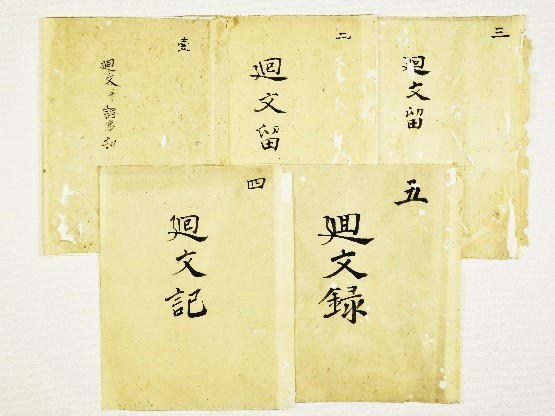 壹
廻文
二
廻文留
三
廻文留
四
廻文記
五
廻文録